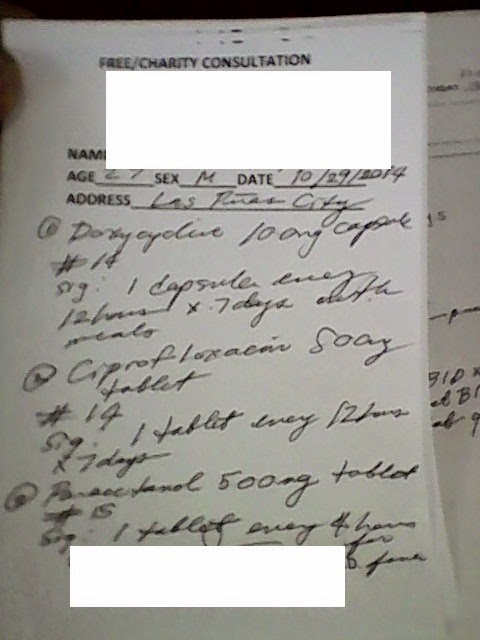 FREE/CHARITY CONSULTATION
NAME
AGE SEX M DATE 10/29/2014
ADDRESS Las Piñas City
① Doxycycline 100mg capsule
#14
Sig: 1 capsule every
12 hours x 7 days with
meals
② Ciprofloxacin 500mg
tablet
#14
Sig: 1 tablet every 12 hours
x 7 days
③ Paracetamol 500mg tablet
#15
Sig: 1 tablet every 4 hours
for
fever
BID x